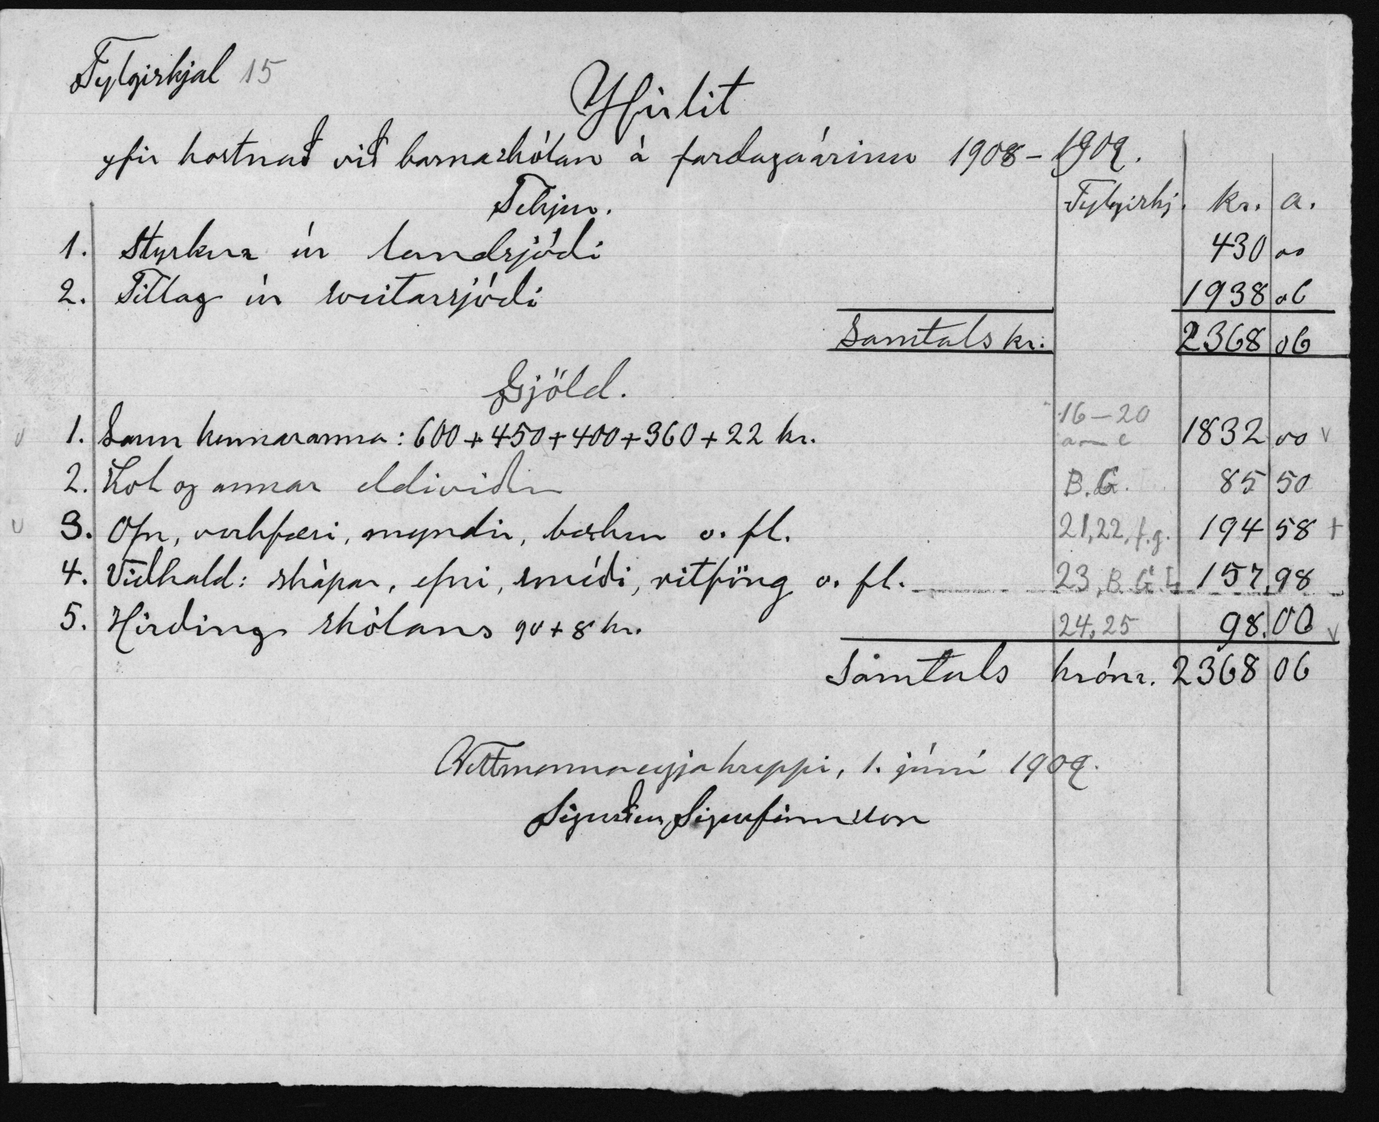 Fylgiskjal 15
Yfirlit
yfir kostnað við barnaskólan á fardagaárinu 1908-1909.
Tekjur. Fylgiskj. kr. a.
1. Styrkur úr landsjóði 430 00
2. Tillag úr sveitarsjóði 1938 06
Samtals kr. 2368 06
Gjöld.
1. Laun kennaranna: 600+450+400+360+22 kr. 16-20 a-e 1832 00 v
2. Kol og annar eldiviður B.G. 85 50
3. Ofn, verkfæri, myndir, bækur o. fl. 21,22,f.g. 194 58 +
4. Viðhald: skápar, efni, smíði, ritföng o. fl. 23, B.G. 157,98
5. Hirðing skólans 90+8 kr. 24,25 98.00 v
Samtals krónr. 2368 06
Vestmannaeyjahreppi, 1. júní 1909.
Sigurður Sigurfinnsson